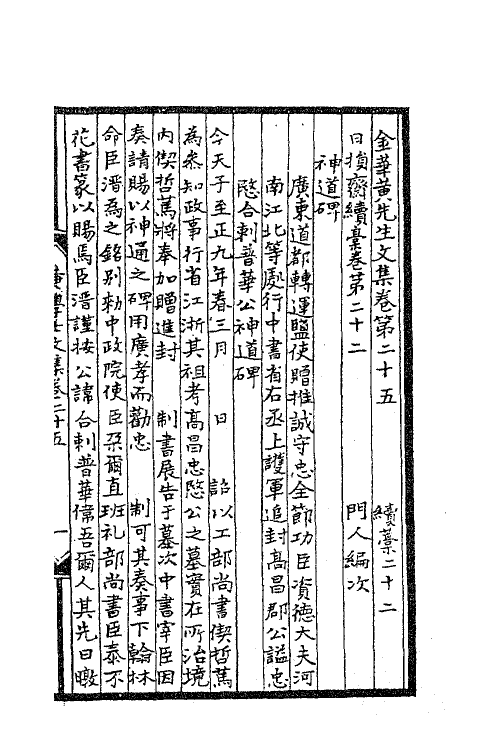 金華黄先生文集卷第二十五　續藁二十二
日損齋續藁卷第二十二　門人編次
神道碑
廣東道都轉運鹽使贈推誠守忠全節功臣資德大夫河
南江北等處行中書省右丞上護軍追封髙昌郡公謚忠
愍合剌普華公神道碑
今天子至正九年春三月　日　詔以工部尚書偰哲篤
為参知政事行省江浙其祖考髙昌忠愍公之墓實在所治境
内偰哲篤將奉加贈進封　制書展告于墓次中書宰臣因
奏請賜以神道之碑用廣孝而勸忠　制可其奏事下翰林
命臣溍為之銘别勑中政院使臣朶爾直班礼部尚書臣泰不
花書篆以賜焉臣溍謹按公諱合剌普華偉吾爾人其先曰暾
黄學士文集卷二十五
一